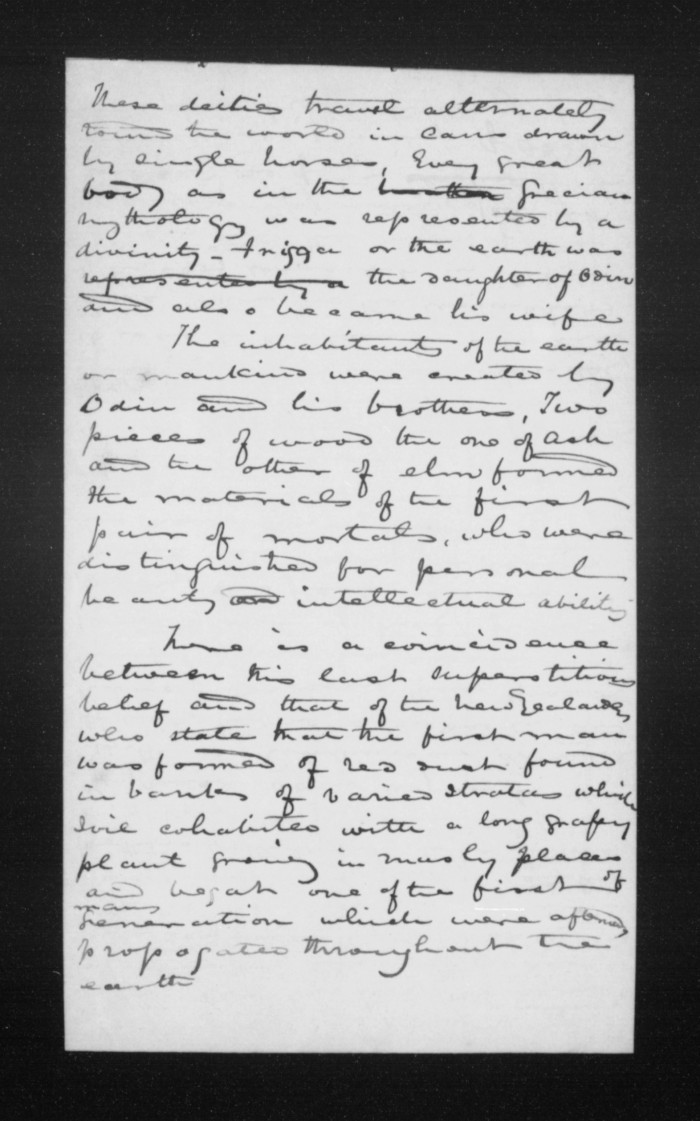 These deities travel alternately
round the world in cars drawn
by single horses, Every great
body as in the heathen Grecian
mythology was represented by a
divinity - Frigga or the earth was
represented by a the daughter of Odin
and also became his wife
The inhabitants of the earth
or mankind were created by
Odin and his brothers, Two
pieces of wood the one of Ash
and the other of elm formed
the materials of the first
pair of mortals, who were
distinguished for personal
beauty and intellectual ability
There is a coincidence
between this last superstitious
belief and that of the New Zealanders
who state that the first man
was formed of red dust found
in banks of varied stratas which
soil cohabited with a long
plant in places
and begat one of the first of
mans
generation which were afterwards
propogated throughout the
earth